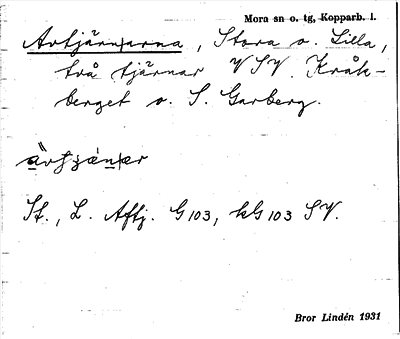 Mora sn o. tg, Kopparb. l.
Avtjärnarna, Stora o. Lilla,
två tjärnar VSV. Kråk-
berget o. S. Garberg.
St., L. Aftj. G103, kG103 SV.
Bror Lindén 1931